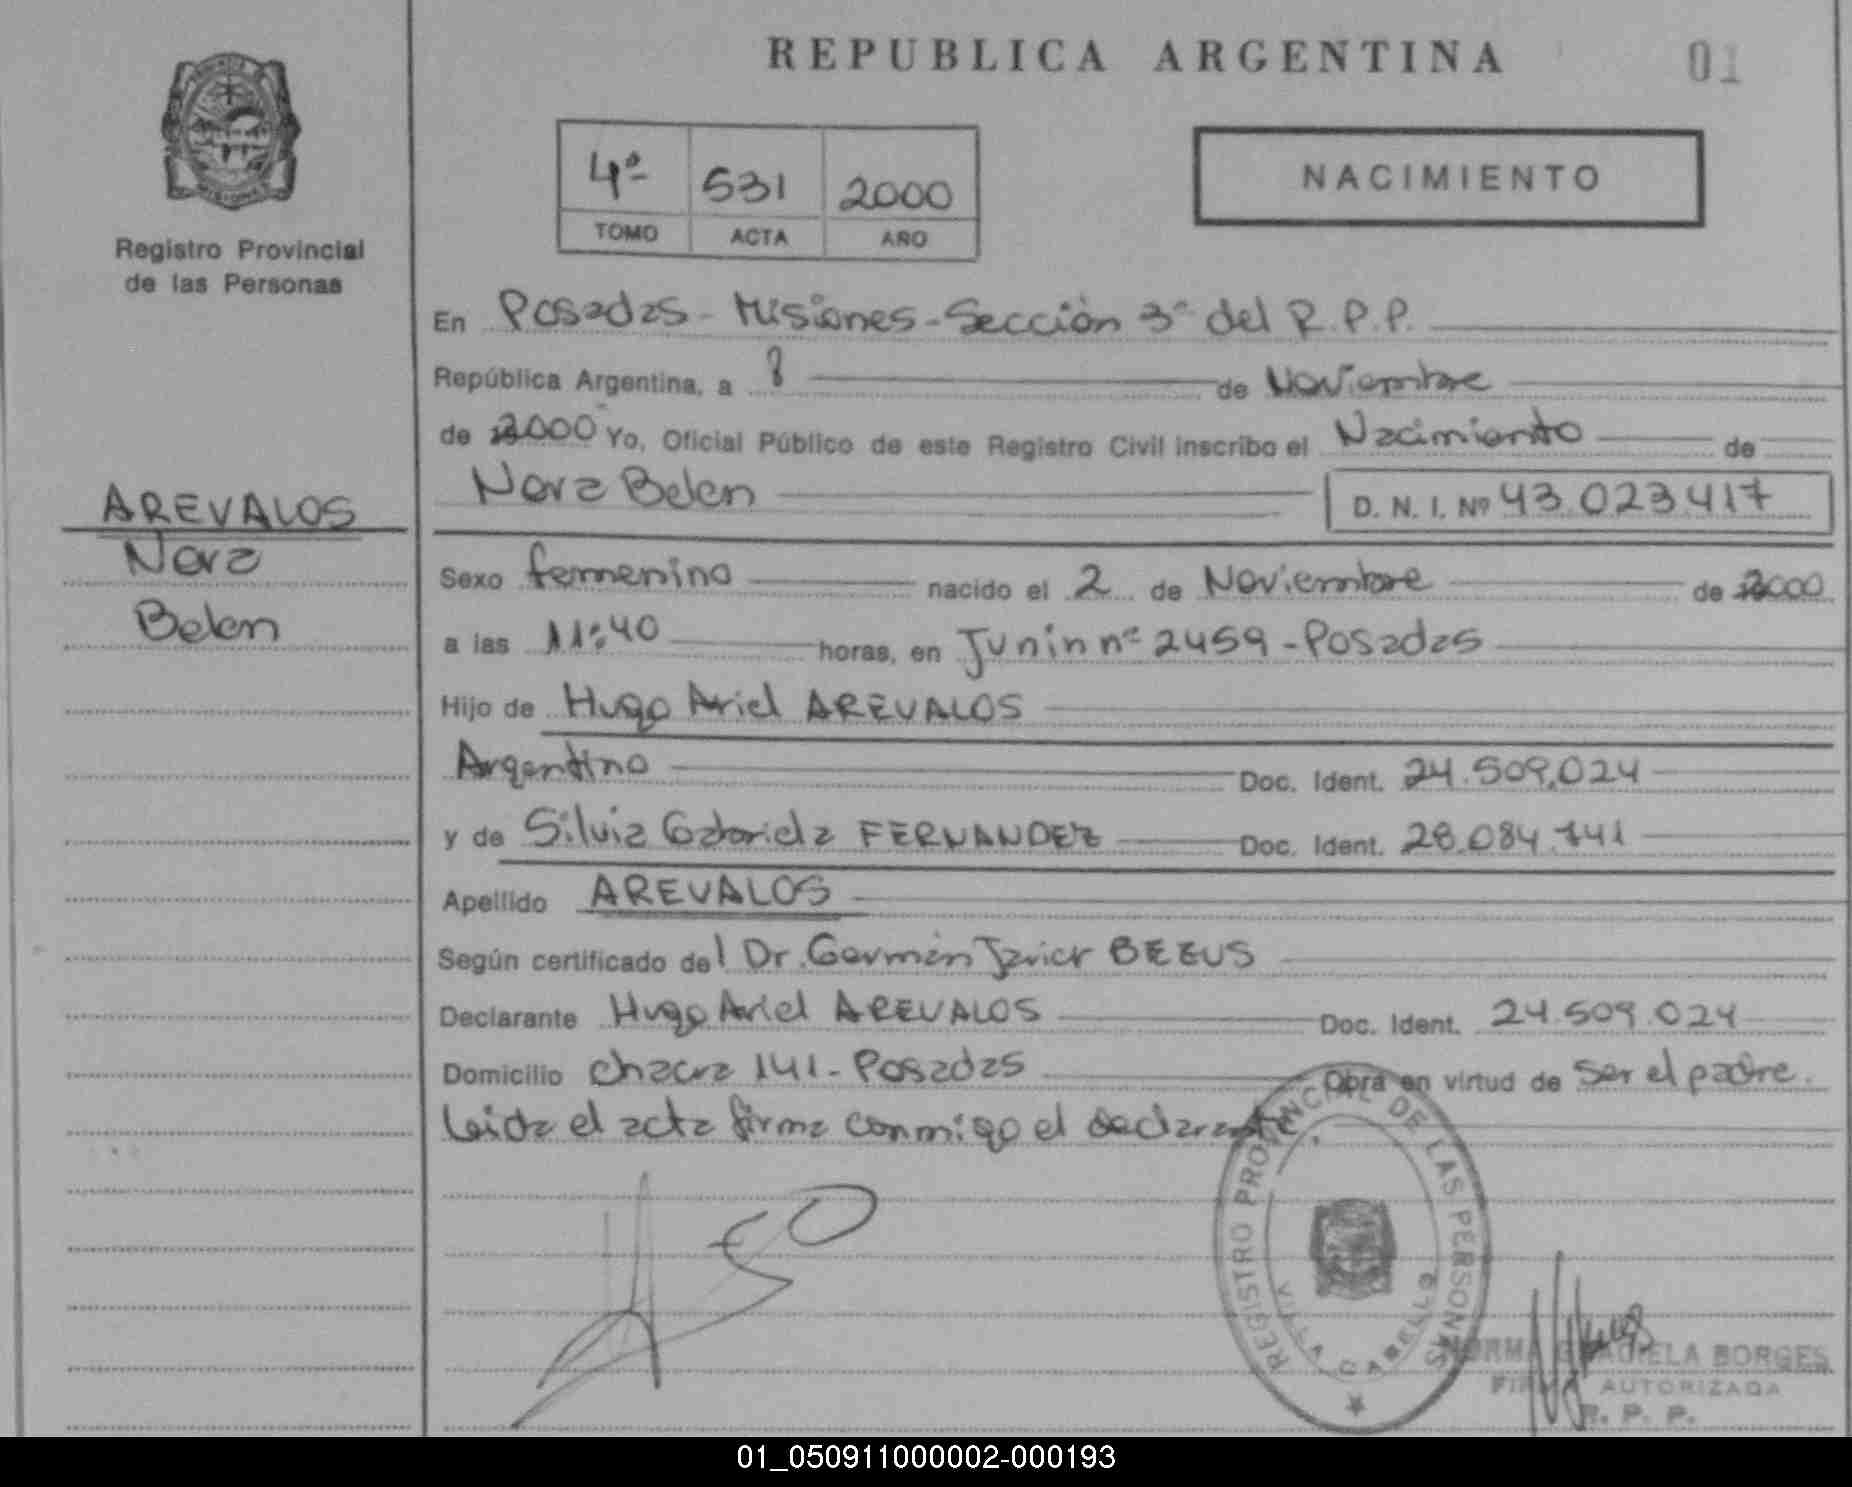 REPUBLICA ARGENTINA
01
Registro Provincial
de las Personas
4ª 531 2000
TOMO ACTA AÑO
NACIMIENTO
En Posadas - Misiones - Sección 3ª del R.P.P.
República Argentina, a 8 de Noviembre
de 2000 Yo, Oficial Público de este Registro Civil inscribo el Nacimiento de
Nora Belen D. N. I. Nº 43.023.417
AREVALOS
Nora
Belen
Sexo femenino nacido el 2 de Noviembre de 2000
a las 11:40 horas, en Junin nº 2459 - Posadas
Hijo de Hugo Ariel AREVALOS
Argentino Doc. Ident. 24.509.024
y de Silvia Gabriela FERNANDEZ Doc. Ident. 28.084.741
Apellido AREVALOS
Según certificado del Dr. Germán Javier BEZUS
Declarante Hugo Ariel AREVALOS Doc. Ident. 24.509.024
Domicilio chacra 141 - Posadas Obra en virtud de ser el padre.
Leida el acta firma conmigo el declarante.
REGISTRO PROVINCIAL DE LAS PERSONAS
VILLA CABELLO
NORMA GRACIELA BORGES
FIRMA AUTORIZADA
R. P. P.
01_050911000002-000193